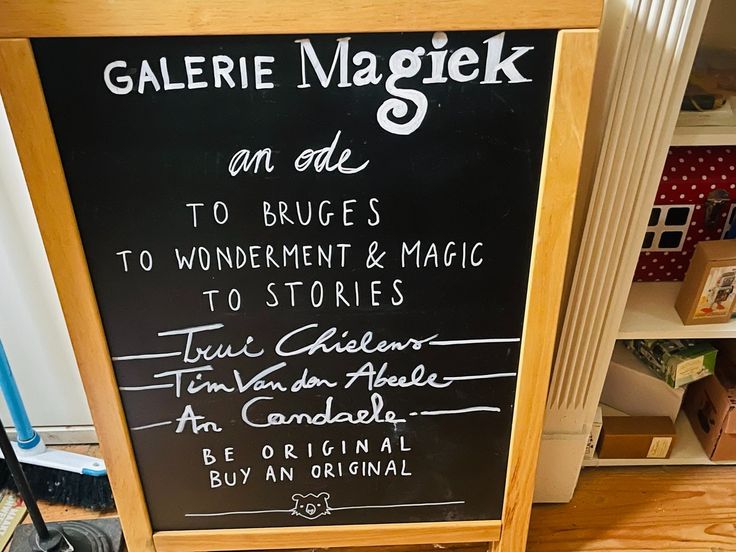 GALERIE Magiek
an ode
TO BRUGES
TO WONDERMENT & MAGIC
TO STORIES
Trui Chielens
Tim Van den Abeele
An Candaele
BE ORIGINAL
BUY AN ORIGINAL